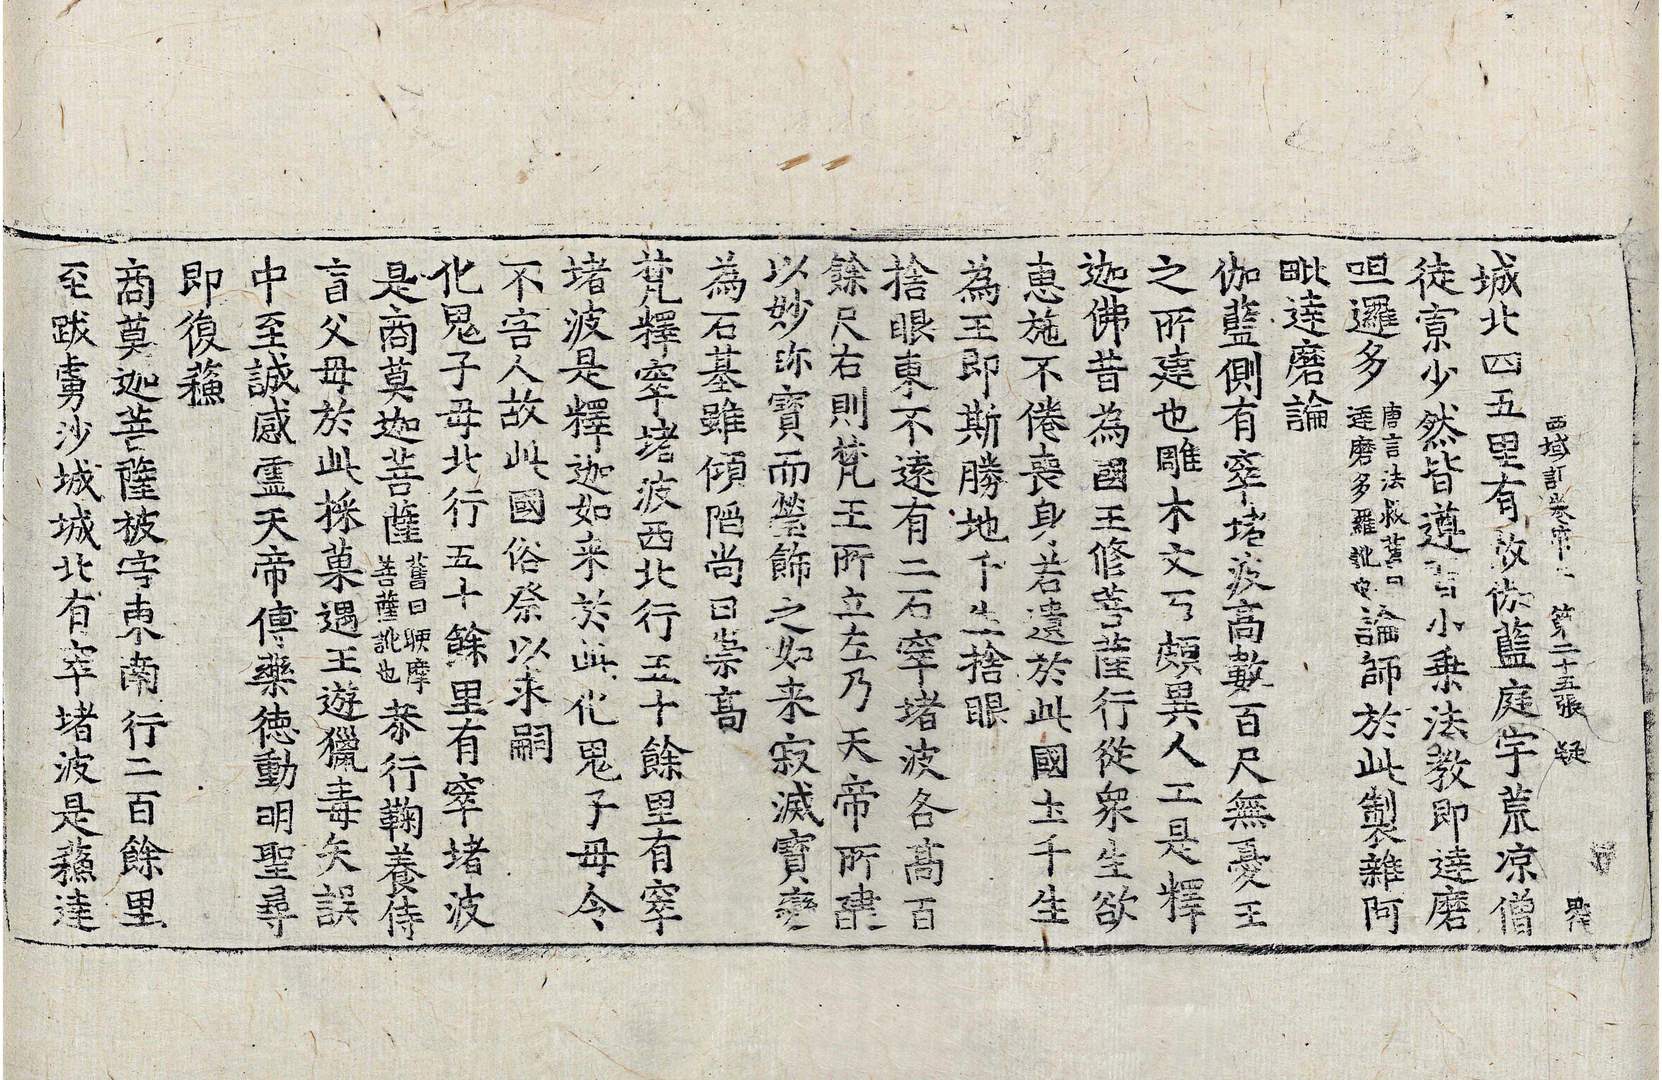 西域記卷第二 第二十五張 疑
城北四五里有故伽藍庭宇荒凉僧
徒寡少然皆遵習小乗法教即達磨
呾邏多唐言法救舊曰達磨多羅訛也論師於此製雜阿
毗達磨論
伽藍側有窣堵波高數百尺無憂王
之所建也雕木文石頗異人工是釋
迦佛昔為國王修菩薩行從衆生欲
惠施不倦喪身若遺於此國土千生
為王即斯勝地千生捨眼
捨眼東不遠有二石窣堵波各高百
餘尺右則梵王所立左乃天帝所建
以妙珎寶而瑩飾之如来寂滅寶變
為石基雖傾陷尚曰崇高
梵釋窣堵波西北行五十餘里有窣
堵波是釋迦如来於此化鬼子母令
不害人故此國俗祭以求嗣
化鬼子母北行五十餘里有窣堵波
是商莫迦菩薩舊曰睒摩菩薩訛也恭行鞠養侍
盲父母於此採菓遇王遊獵毒矢誤
中至誠感霊天帝傅藥德動明聖尋
即復穌
商莫迦菩薩被害東南行二百餘里
至跋虜沙城城北有窣堵波是蘓達